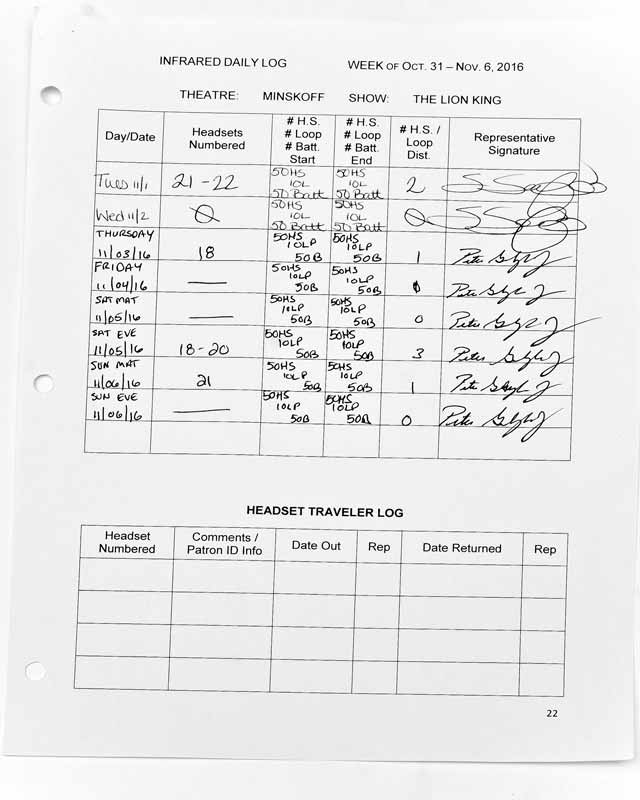 INFRARED DAILY LOG WEEK OF OCT. 31 – NOV. 6, 2016
THEATRE: MINSKOFF SHOW: THE LION KING
Day/Date Headsets Numbered # H.S. # Loop # Batt. Start # H.S. # Loop # Batt. End # H.S. / Loop Dist. Representative Signature
Tues 11/1 21-22 50HS 10L 50 Batt 50HS 10L 50 Batt 2
Wed 11/2 Ø 50HS 10L 50 Batt 50HS 10L 50 Batt Ø
THURSDAY 11/03/16 18 50HS 10LP 50B 50HS 10LP 50B 1 Peter
FRIDAY 11/04/16 — 50HS 10LP 50B 50HS 10LP 50B Peter
SAT MAT 11/05/16 — 50HS 10LP 50B 50HS 10LP 50B 0 Peter
SAT EVE 11/05/16 18-20 50HS 10LP 50B 50HS 10LP 50B 3 Peter
SUN MAT 11/06/16 21 50HS 10LP 50B 50HS 10LP 50B 1 Peter
SUN EVE 11/06/16 — 50HS 10LP 50B 50HS 10LP 50B 0 Peter
HEADSET TRAVELER LOG
Headset Numbered Comments / Patron ID Info Date Out Rep Date Returned Rep
22